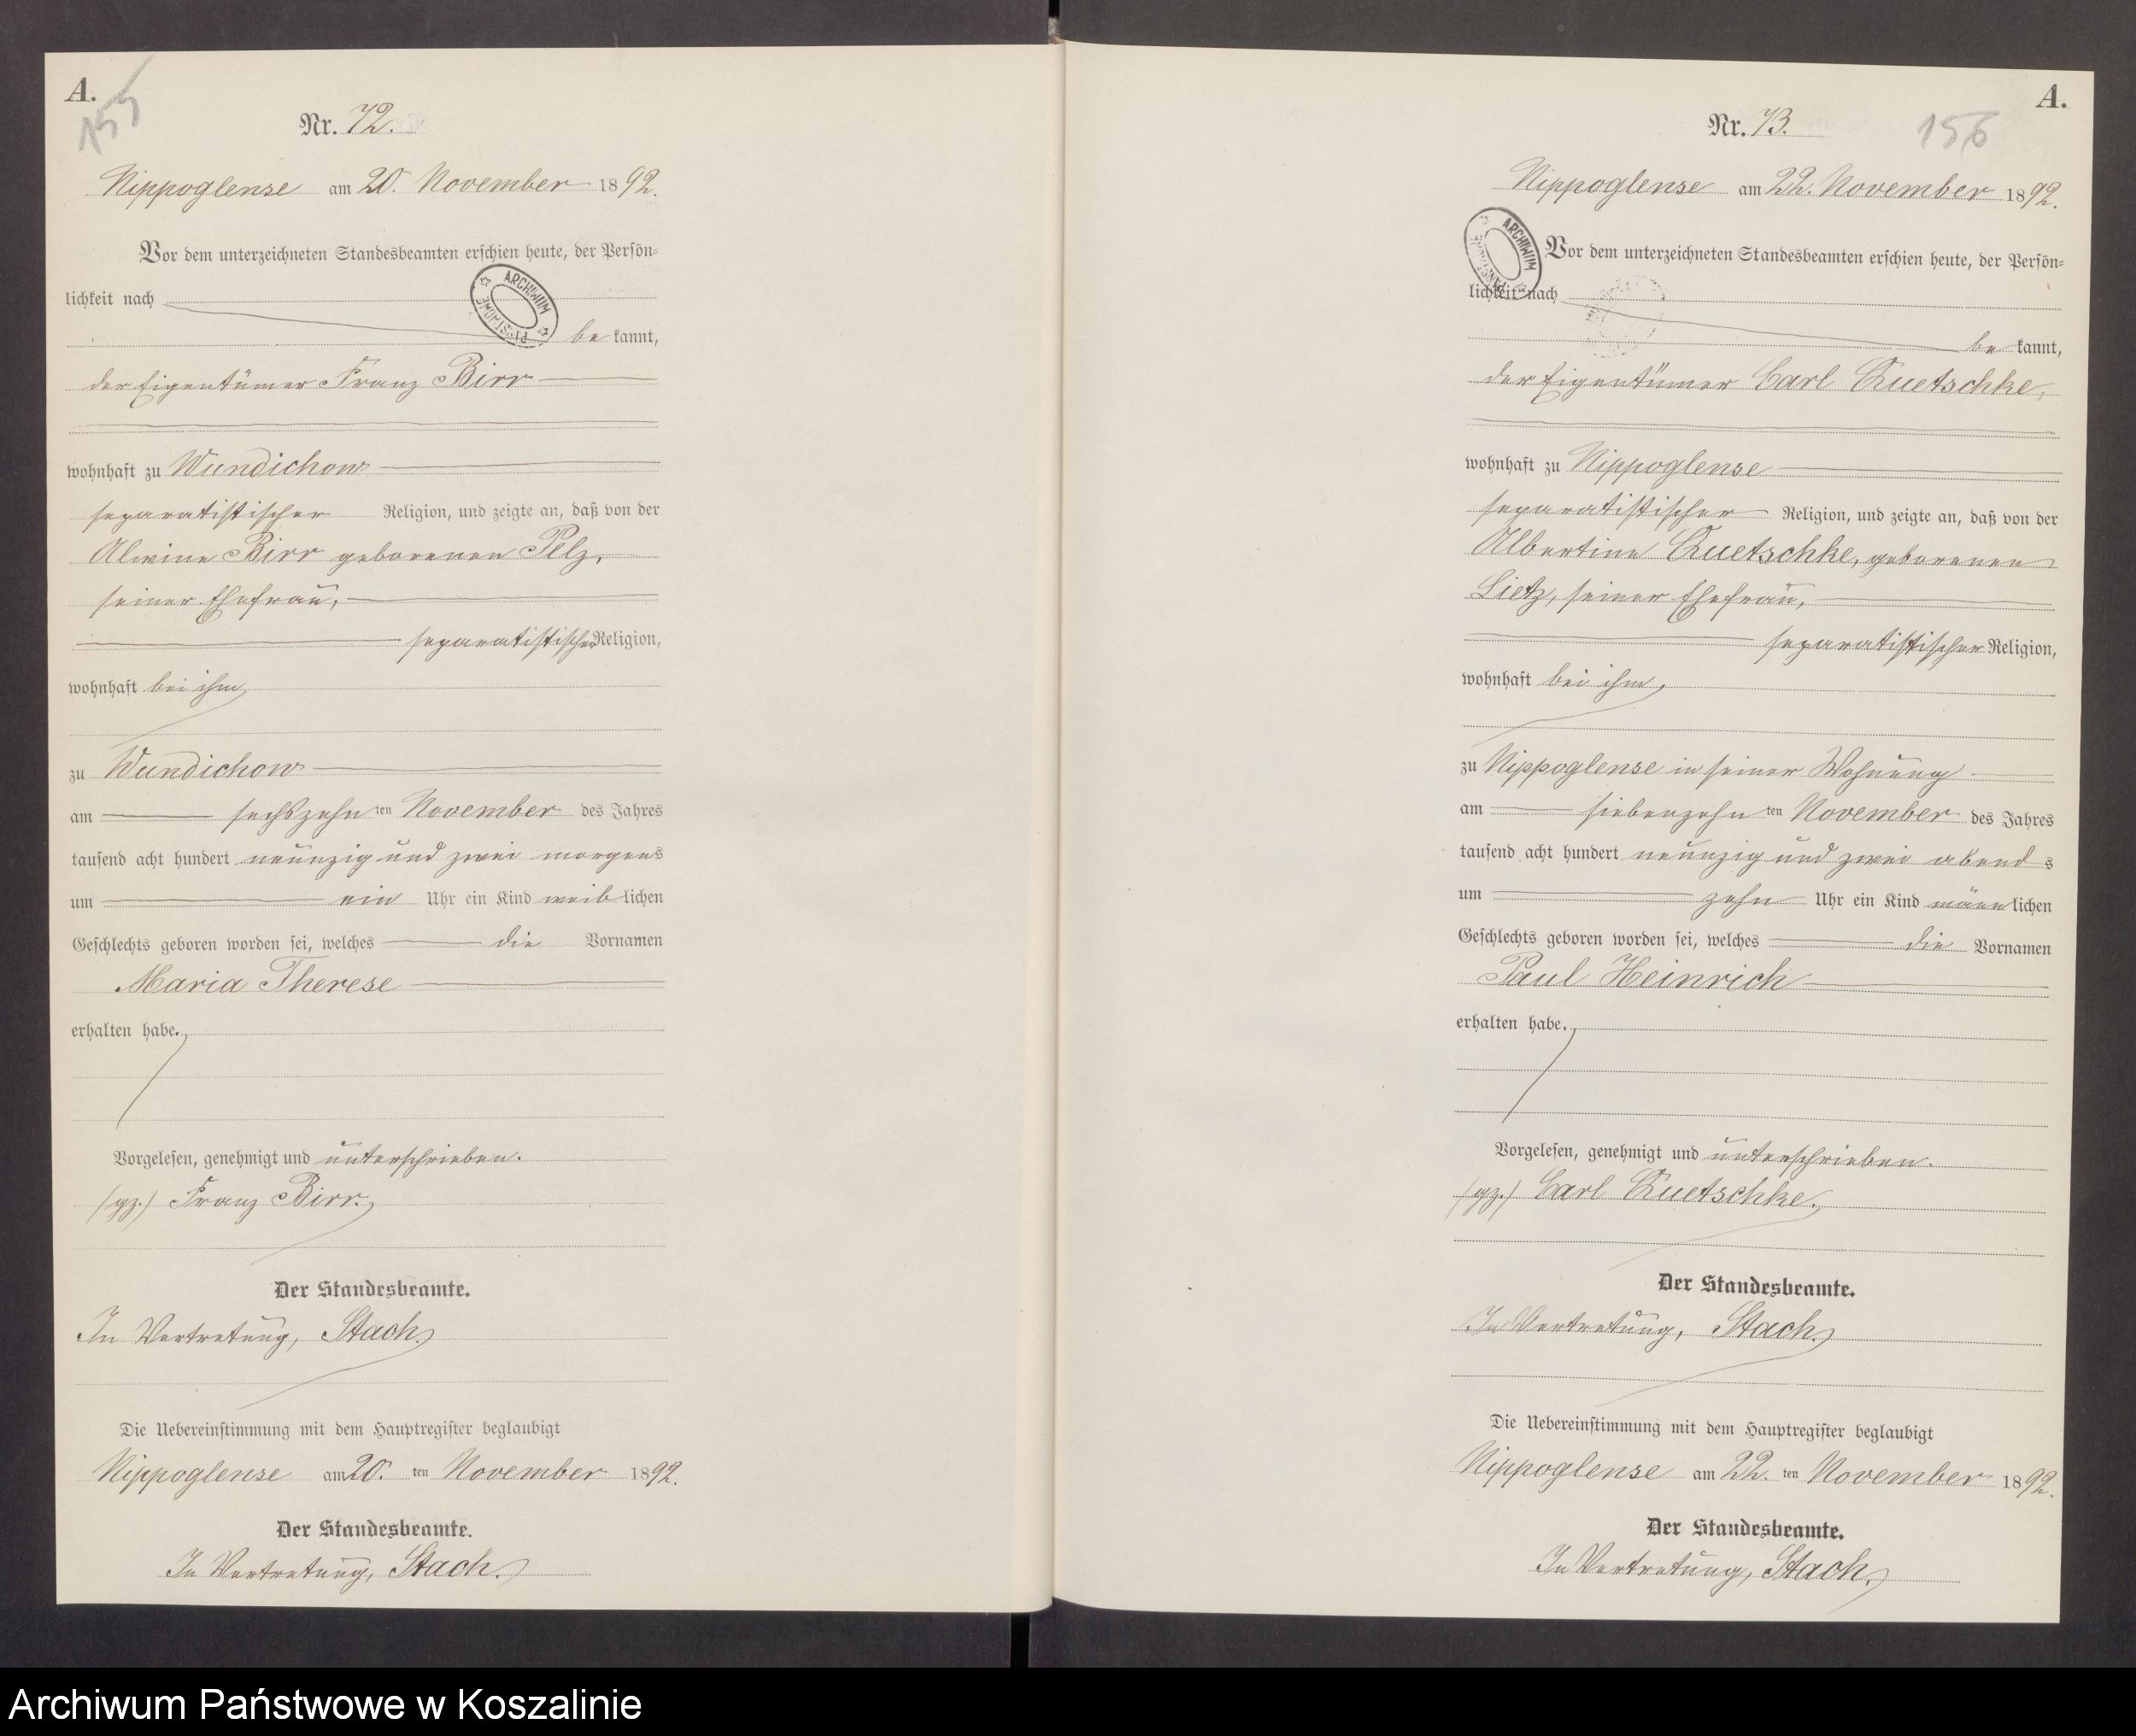 A.
155
Nr. 72.
Nippoglense am 20. November 1892.
Vor dem unterzeichneten Standesbeamten erschien heute, der Persön-
lichkeit nach
ARCHIWUM
be kannt,
der Eigentümer Franz Birr
wohnhaft zu Wundichow
separatistischer Religion, und zeigte an, daß von der
Alwine Birr geborenen Pelz,
seiner Ehefrau,
separatistischer Religion,
wohnhaft bei ihm,
zu Wundichow
am sechszehn ten November des Jahres
tausend acht hundert neunzig und zwei morgens
um ein Uhr ein Kind weib lichen
Geschlechts geboren worden sei, welches die Vornamen
Maria Therese
erhalten habe.
Vorgelesen, genehmigt und unterschrieben.
(gz.) Franz Birr.
Der Standesbeamte.
In Vertretung, Stach.
Die Uebereinstimmung mit dem Hauptregister beglaubigt
Nippoglense am 20. ten November 1892.
Der Standesbeamte.
In Vertretung, Stach.
A.
156
Nr. 73.
Nippoglense am 22. November 1892.
ARCHIWUM
Vor dem unterzeichneten Standesbeamten erschien heute, der Persön-
lichkeit nach
be kannt,
der Eigentümer Carl Quetschke,
wohnhaft zu Nippoglense
separatistischer Religion, und zeigte an, daß von der
Albertine Quetschke, geborenen
Lietz, seiner Ehefrau,
separatistischer Religion,
wohnhaft bei ihm,
zu Nippoglense in seiner Wohnung
am siebenzehn ten November des Jahres
tausend acht hundert neunzig und zwei abend s
um zehn Uhr ein Kind männ lichen
Geschlechts geboren worden sei, welches die Vornamen
Paul Heinrich
erhalten habe.
Vorgelesen, genehmigt und unterschrieben.
(gz.) Carl Quetschke.
Der Standesbeamte.
In Vertretung, Stach.
Die Uebereinstimmung mit dem Hauptregister beglaubigt
Nippoglense am 22. ten November 1892.
Der Standesbeamte.
In Vertretung, Stach.
Archiwum Państwowe w Koszalinie